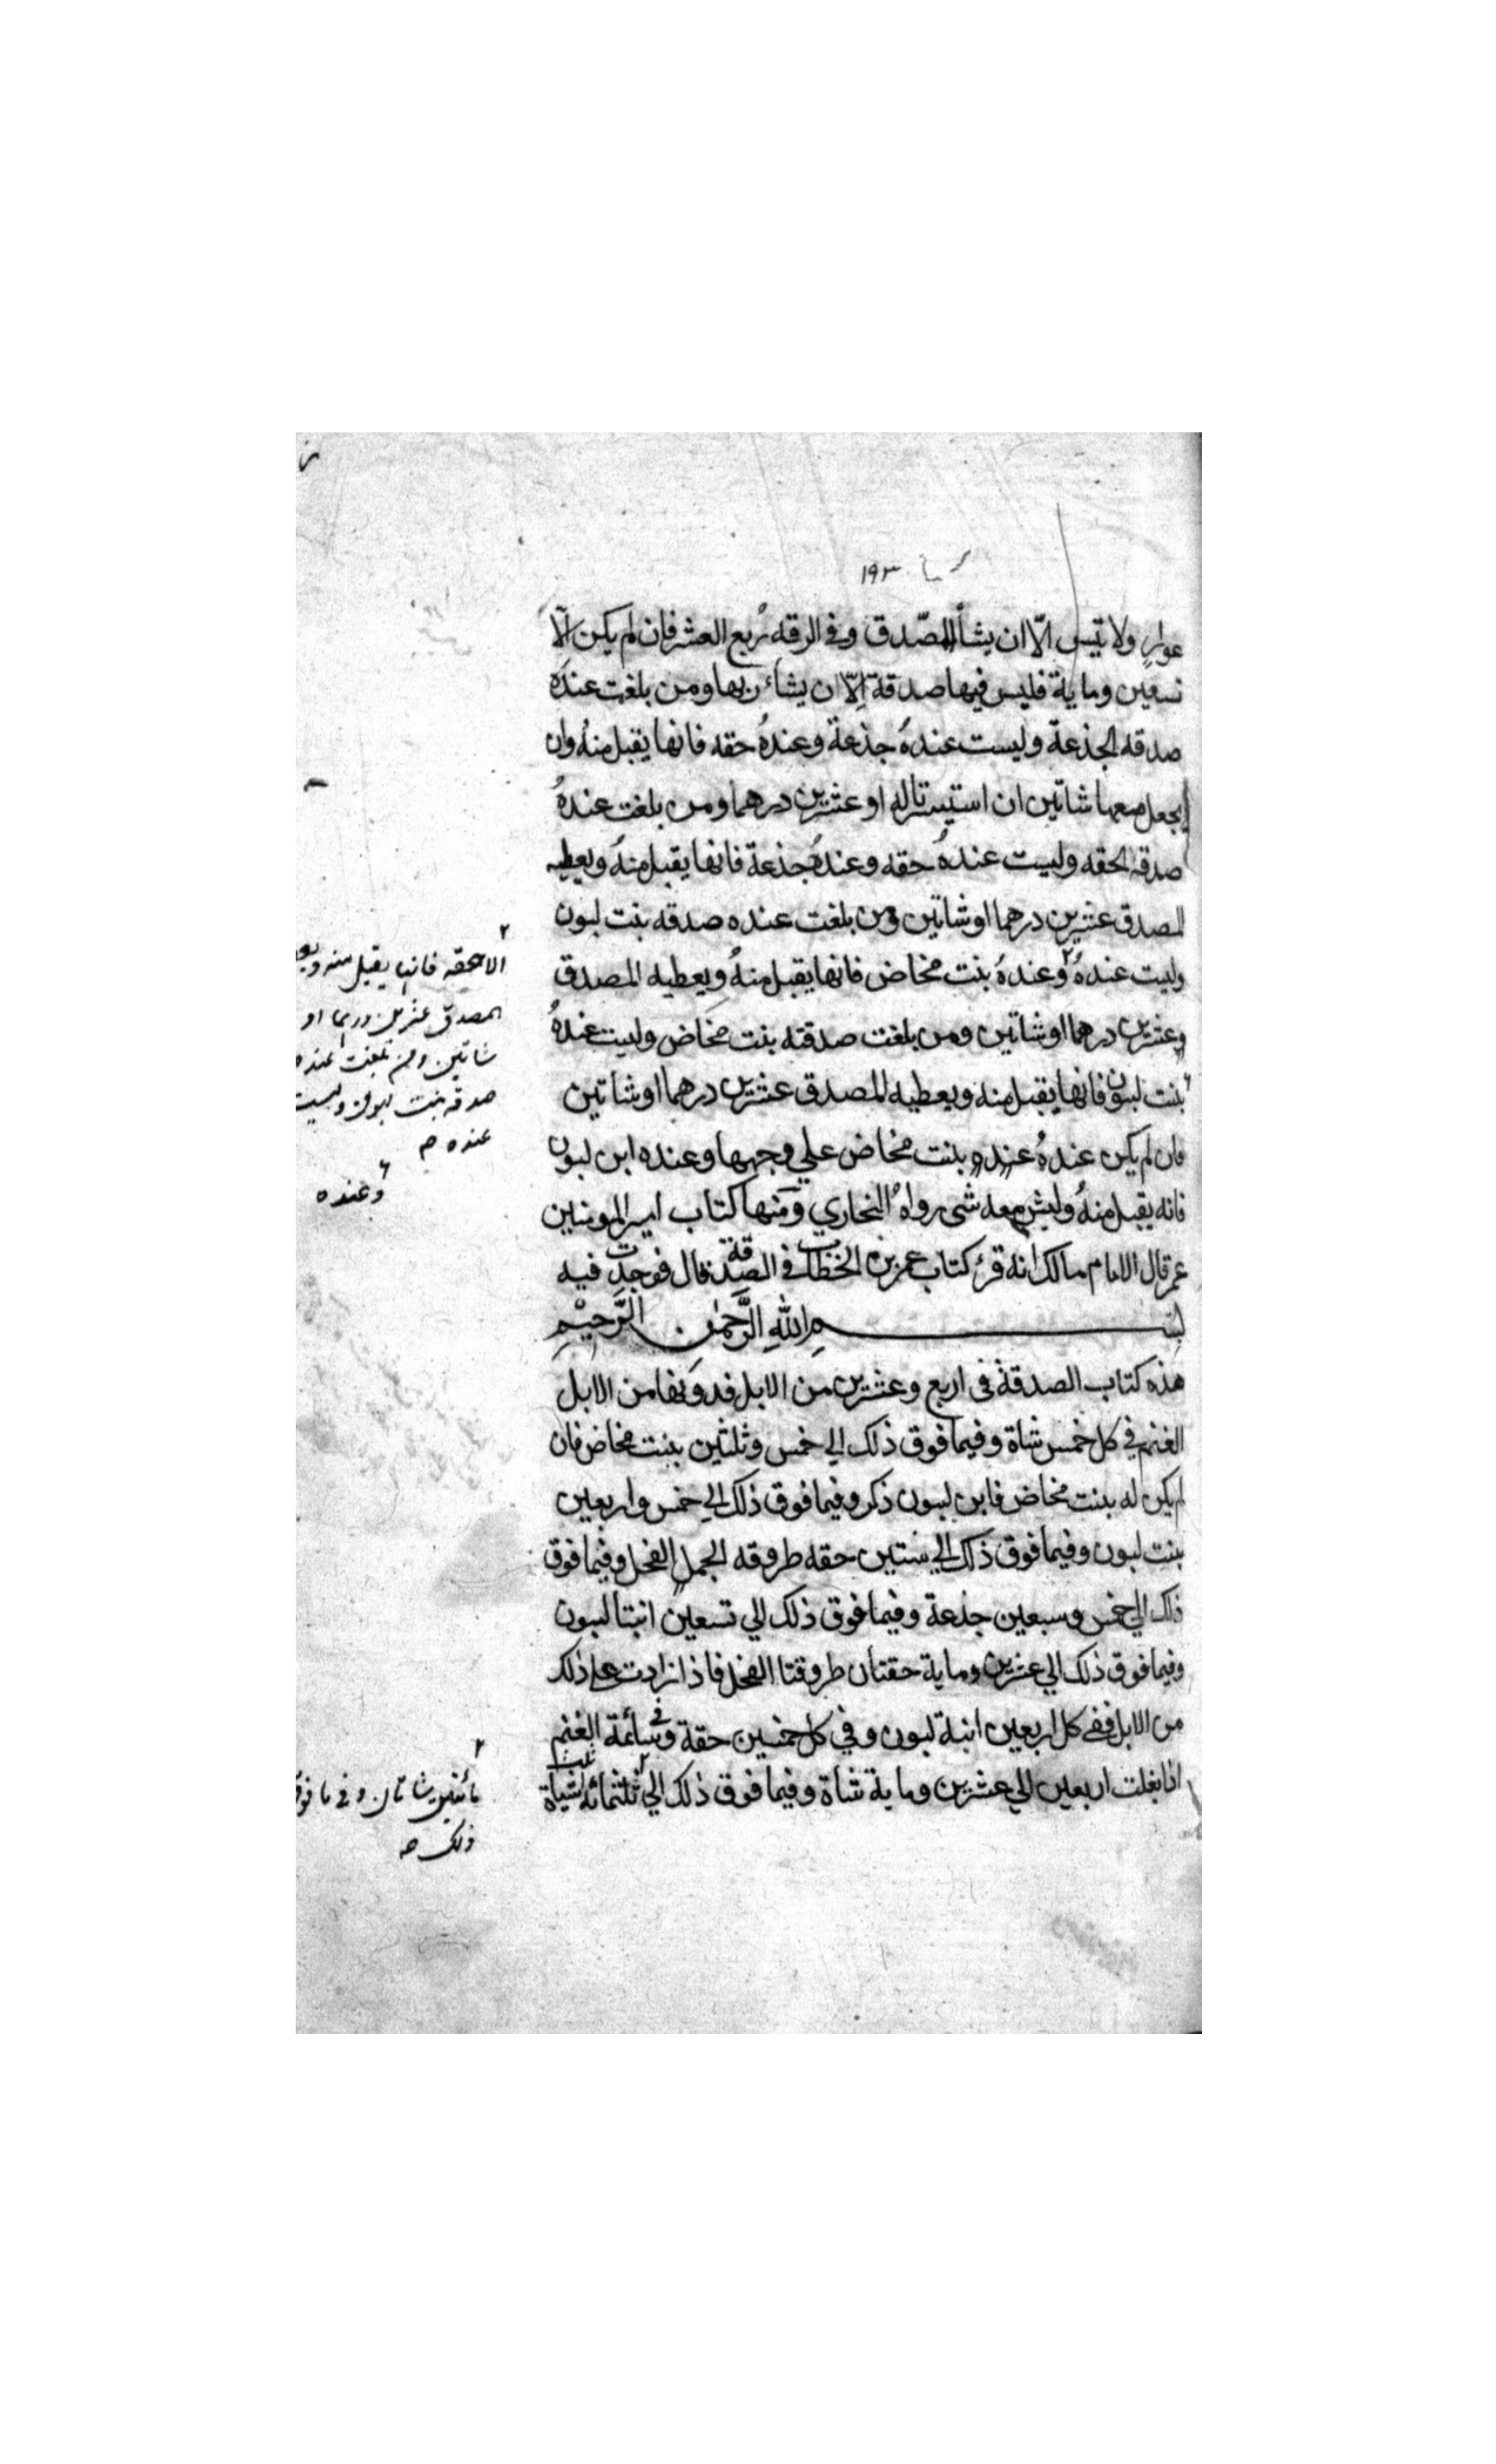 ١٩٣
عوار ولا تيس الّا ان يشأ المصّدق وفي الرقه ربع العشر فان لم يكن الّا
تسعين وماية فليس فيها صدقة الّا ان يشاء ربها ومن بلغت عنده
صدقه الجذعة وليست عندهُ جذعة وعندهُ حقه فانها يقبل منهُ وان
يجعل معها شاتين ان استيسرتا له او عشرين درهما ومن بلغت عندهُ
صدقه الحقه وليست عندهُ حقه وعندهُ جذعة فانها يقبل منهُ ويعطيه
المصدق عشرين درهما اوشاتين ومن بلغت عنده صدقه بنت لبون
وليست عندهُ ٢ وعندهُ بنت مخاض فانها يقبل منهُ ويعطيه المصدق
وعشرين درهما اوشاتين ومن بلغت صدقته بنت مخاض وليست عندهُ
بنت لبون فانها يقبل منه ويعطيه المصدق عشرين درهما اوشاتين
فان لم يكن عندهُ عنده بنت مخاض علي وجهها وعنده ابن لبون
فانه يقبل منهُ وليس معه شى رواهُ البخاري ومنها كتاب امير المومنين
عمر قال الامام مالك انه قرئ كتاب عمر بن الخطاب في الصدقة قال فوجدت فيه
بسم الله الرَّحمٰن الرَّحيْمِ
هذه كتاب الصدقة فى اربع وعشرين من الابل فدونها من الابل
الغنم في كل خمس شاة وفيما فوق ذلك الي خمس وثلثين بنت مخاض فان
لم يكن له بنت مخاض فابن لبون ذكر وفيما فوق ذلك الي خمس واربعين
بنت لبون وفيما فوق ذلك الي ستين حقه طروقه الجمل الفحل وفيما فوق
ذلك الي خمس وسبعين جذعة وفيما فوق ذلك الي تسعين ابنتا لبون
وفيما فوق ذلك الي عشرين وماية حقتان طروقتا الفحل فاذا زادت على ذلك
من الابل ففي كل اربعين ابنة لبون وفي كل خمسين حقة وفي سائمة الغنم
اذا بغلت اربعين الي عشرين وماية شاة وفيما فوق ذلك الي ٢ ثلثمائه ثلث شياة
٢
الا حقه فانها يقبل منه ويع
المصدق عشرين درهما او
شاتين ومن بلغت عنده
صدقه بنت لبون وليست
عنده
وعنده
٢
مائتين شاتان وفي ما فوق
ذلك